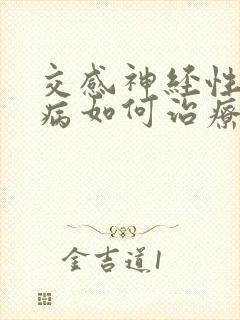 交感神经性
病如何治疗
金吉道1